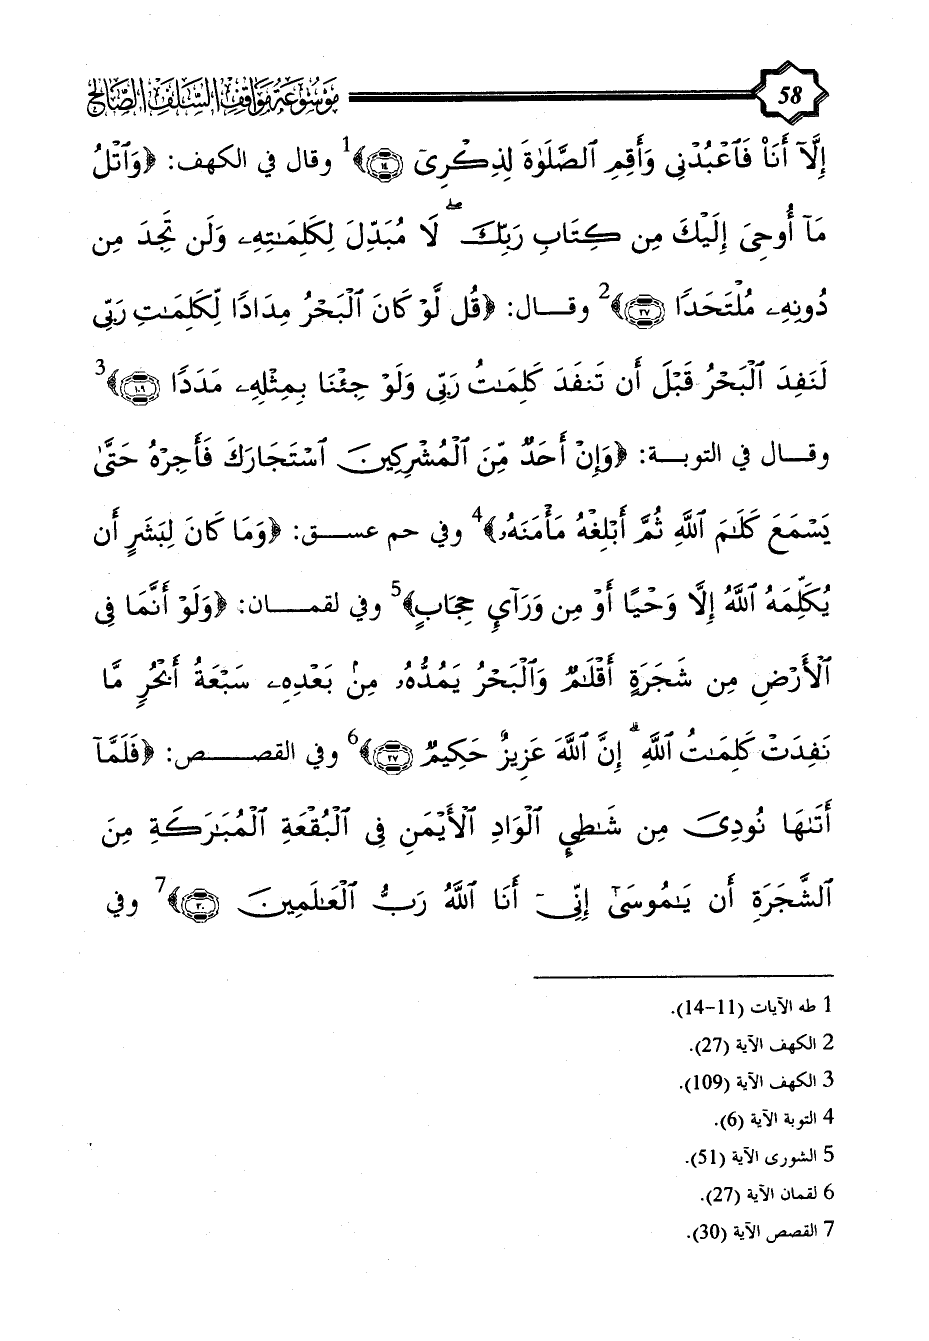 58 موسوعة مواقف السلف الصالح
إِلَّآ أَنَا۠ فَٱعْبُدْنِى وَأَقِمِ ٱلصَّلَوٰةَ لِذِكْرِىٓ ١٤﴾1 وقال في الكهف: ﴿وَٱتْلُ
مَآ أُوحِىَ إِلَيْكَ مِن كِتَابِ رَبِّكَ ۖ لَا مُبَدِّلَ لِكَلِمَـٰتِهِۦ وَلَن تَجِدَ مِن
دُونِهِۦ مُلْتَحَدًا ٢٧﴾2 وقـــال: ﴿قُل لَّوْ كَانَ ٱلْبَحْرُ مِدَادًا لِّكَلِمَـٰتِ رَبِّى
لَنَفِدَ ٱلْبَحْرُ قَبْلَ أَن تَنفَدَ كَلِمَـٰتُ رَبِّى وَلَوْ جِئْنَا بِمِثْلِهِۦ مَدَدًا ١٠٩﴾3
وقـــال في التوبـــة: ﴿وَإِنْ أَحَدٌ مِّنَ ٱلْمُشْرِكِينَ ٱسْتَجَارَكَ فَأَجِرْهُ حَتَّىٰ
يَسْمَعَ كَلَـٰمَ ٱللَّهِ ثُمَّ أَبْلِغْهُ مَأْمَنَهُۥ﴾4 وفي حم عســـق: ﴿وَمَا كَانَ لِبَشَرٍ أَن
يُكَلِّمَهُ ٱللَّهُ إِلَّا وَحْيًا أَوْ مِن وَرَآئِ حِجَابٍ﴾5 وفي لقمـــان: ﴿وَلَوْ أَنَّمَا فِى
ٱلْأَرْضِ مِن شَجَرَةٍ أَقْلَـٰمٌ وَٱلْبَحْرُ يَمُدُّهُۥ مِنۢ بَعْدِهِۦ سَبْعَةُ أَبْحُرٍ مَّا
نَفِدَتْ كَلِمَـٰتُ ٱللَّهِ ۗ إِنَّ ٱللَّهَ عَزِيزٌ حَكِيمٌ ٢٧﴾6 وفي القصـــص: ﴿فَلَمَّآ
أَتَىٰهَا نُودِىَ مِن شَـٰطِئِ ٱلْوَادِ ٱلْأَيْمَنِ فِى ٱلْبُقْعَةِ ٱلْمُبَـٰرَكَةِ مِنَ
ٱلشَّجَرَةِ أَن يَـٰمُوسَىٰٓ إِنِّىٓ أَنَا ٱللَّهُ رَبُّ ٱلْعَـٰلَمِينَ ٣٠﴾7 وفي
1 طه الآيات (11-14).
2 الكهف الآية (27).
3 الكهف الآية (109).
4 التوبة الآية (6).
5 الشورى الآية (51).
6 لقمان الآية (27).
7 القصص الآية (30).